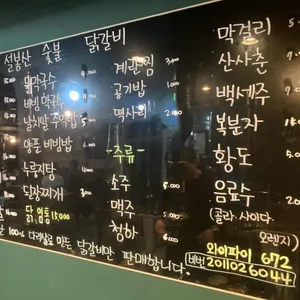 설봉산 숯불 닭갈비
물막국수
비빔막국수
날치알 주먹밥
양푼 비빔밥
누룽지탕
된장찌개 3,000
닭 염통 15,000
100% 다리살로 만든 닭갈비만 판매합니다.
계란찜 3,000
공기밥 1,000
막사리 2,000
-주류-
소주 5,000
맥주 5,000
청하 6,000
막걸리
산사춘
백세주
복분자
황도
음료수
(콜라. 사이다. 오렌지)
와이파이 672
비번 2011026044